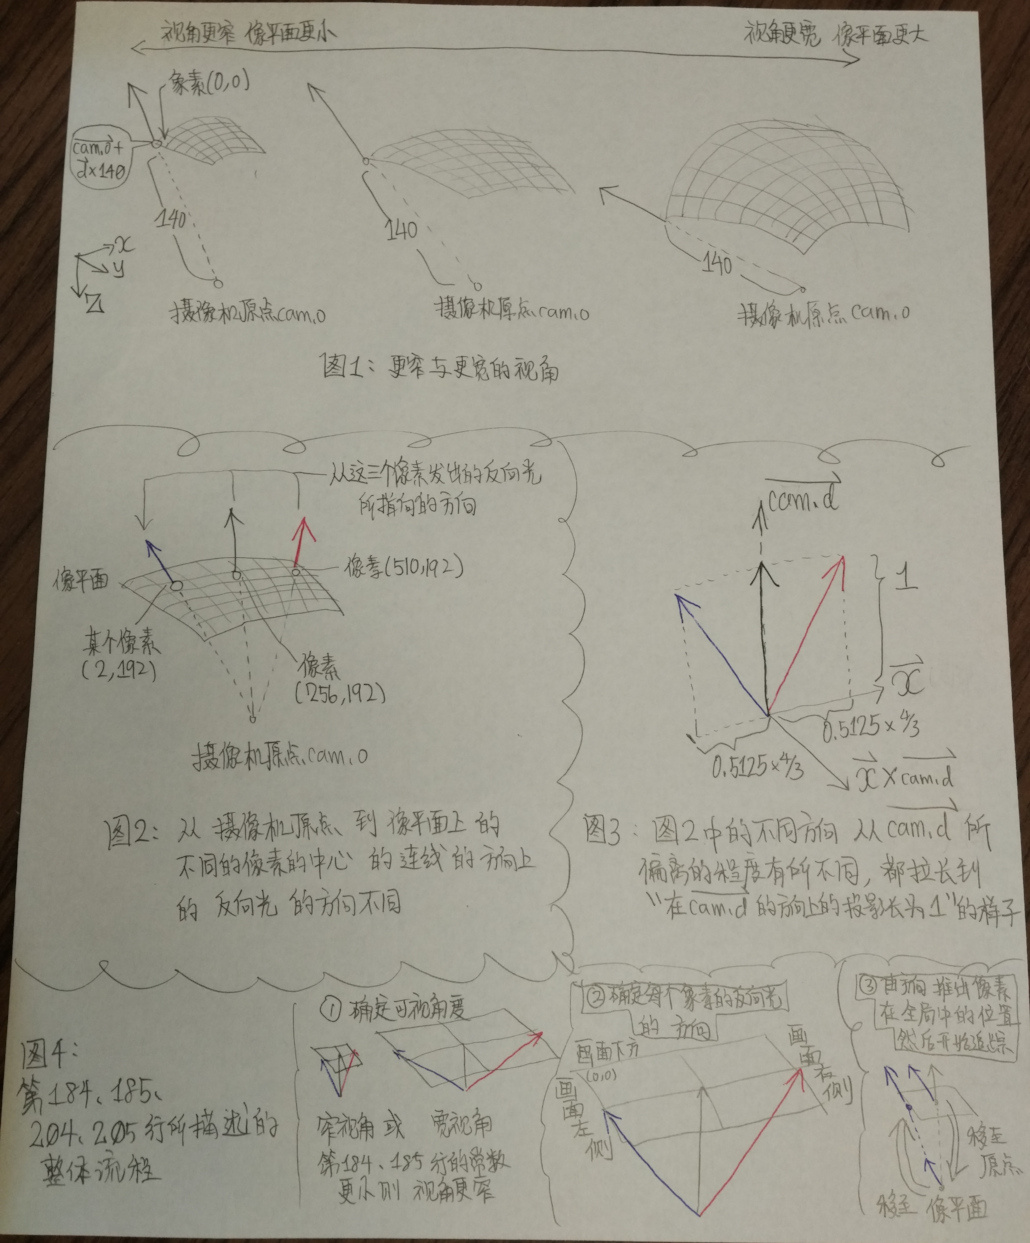 视角更窄 像平面更小
视角更宽 像平面更大
像素(0,0)
cam.o+
d×140
140
x
y
z
摄像机原点cam.o
140
摄像机原点cam.o
140
摄像机原点cam.o
图1: 更窄与更宽的视角
从这三个像素发出的反向光
所指向的方向
像平面
像素(510,192)
某个像素
(2,192)
像素
(256,192)
摄像机原点cam.o
图2: 从摄像机原点到像平面上的
不同的像素的中心的连线的方向上
的反向光的方向不同
cam.d
1
x
0.5125×4/3
0.5125×4/3
x×cam.d
图3: 图2中的不同方向从cam.d所
偏离的程度有所不同, 都拉长到
"在cam.d的方向上的投影长为1"的样子
图4:
第184、185、
204、205行所描述的
整体流程
①确定可视角度
窄视角 或 宽视角
第184、185行的常数
更小则 视角更窄
②确定每个像素的反向光
的方向
画面下方
(0,0)
画面左侧
画面右侧
③由方向推出像素
在全局中的位置
然后开始追踪
移至
原点
移至 像平面